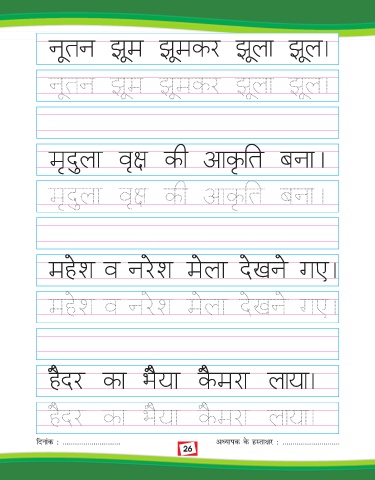 नूतन झूम झूमकर झूला झूल।
नूतन झूम झूमकर झूला झूल।
मृदुला वृक्ष की आकृति बना।
मृदुला वृक्ष की आकृति बना।
महेश व नरेश मेला देखने गए।
महेश व नरेश मेला देखने गए।
हैदर का भैया कैमरा लाया।
हैदर का भैया कैमरा लाया।
दिनांक : ............................ 26 अध्यापक के हस्ताक्षर : ............................